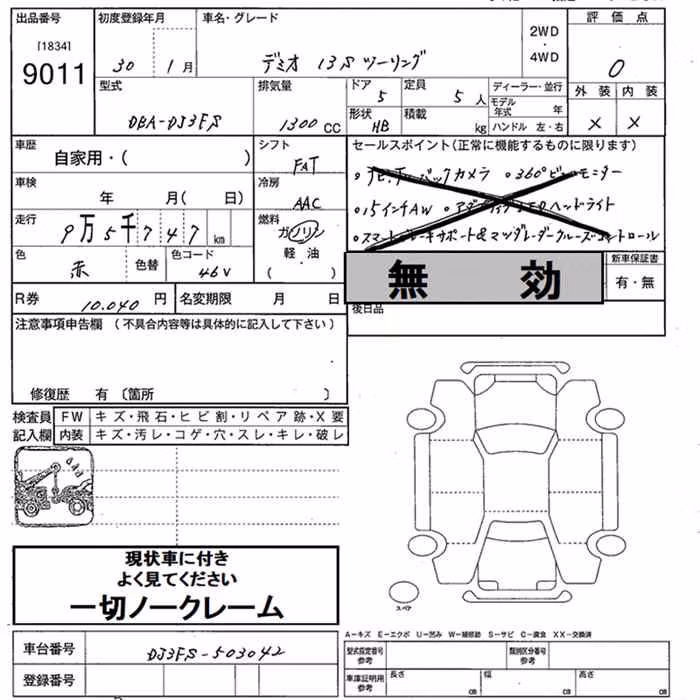 出品番号 初度登録年月 車名・グレード 評価点
[1834]
9011
30 1月 デミオ 13S ツーリング 2WD・4WD 0
型式 排気量 ドア 定員 ディーラー・並行 外装 内装
5 5人 モデル年式 年
DBA-DJ3FS 1300 CC 形状 HB 積載 kg ハンドル 左・右 × ×
車歴 シフト セールスポイント(正常に機能するものに限ります)
自家用・( ) FAT
。ナビ、TV、バックカメラ 。360°ビューモニター
車検 冷房
年 月( 日) AAC 。15インチAW 。アダプティブLEDヘッドライト
走行 燃料
9万5千747km ガソリン 。スマートブレーキサポート&マツダレーダークルーズコントロール
色 色替 色コード 軽油
赤 46V ( ) 無効 新車保証書
有・無
R券 10.040円 名変期限 月 日 後日品
注意事項申告欄 (不具合内容等は具体的に記入して下さい)
修復歴 有 〔箇所 〕
検査員 FW キズ・飛石・ヒビ割・リペア跡・X要
記入欄 内装 キズ・汚レ・コゲ・穴・スレ・キレ・破レ
現状車に付き
よく見てください
一切ノークレーム
スペア
A-キズ E-エクボ U-凹み W-補修跡 S-サビ C-腐食 XX-交換済
車台番号 DJ3FS-503042 型式指定番号 参考 類別区分番号 参考
登録番号 車庫証明用 参考 長さ cm 幅 cm 高さ cm